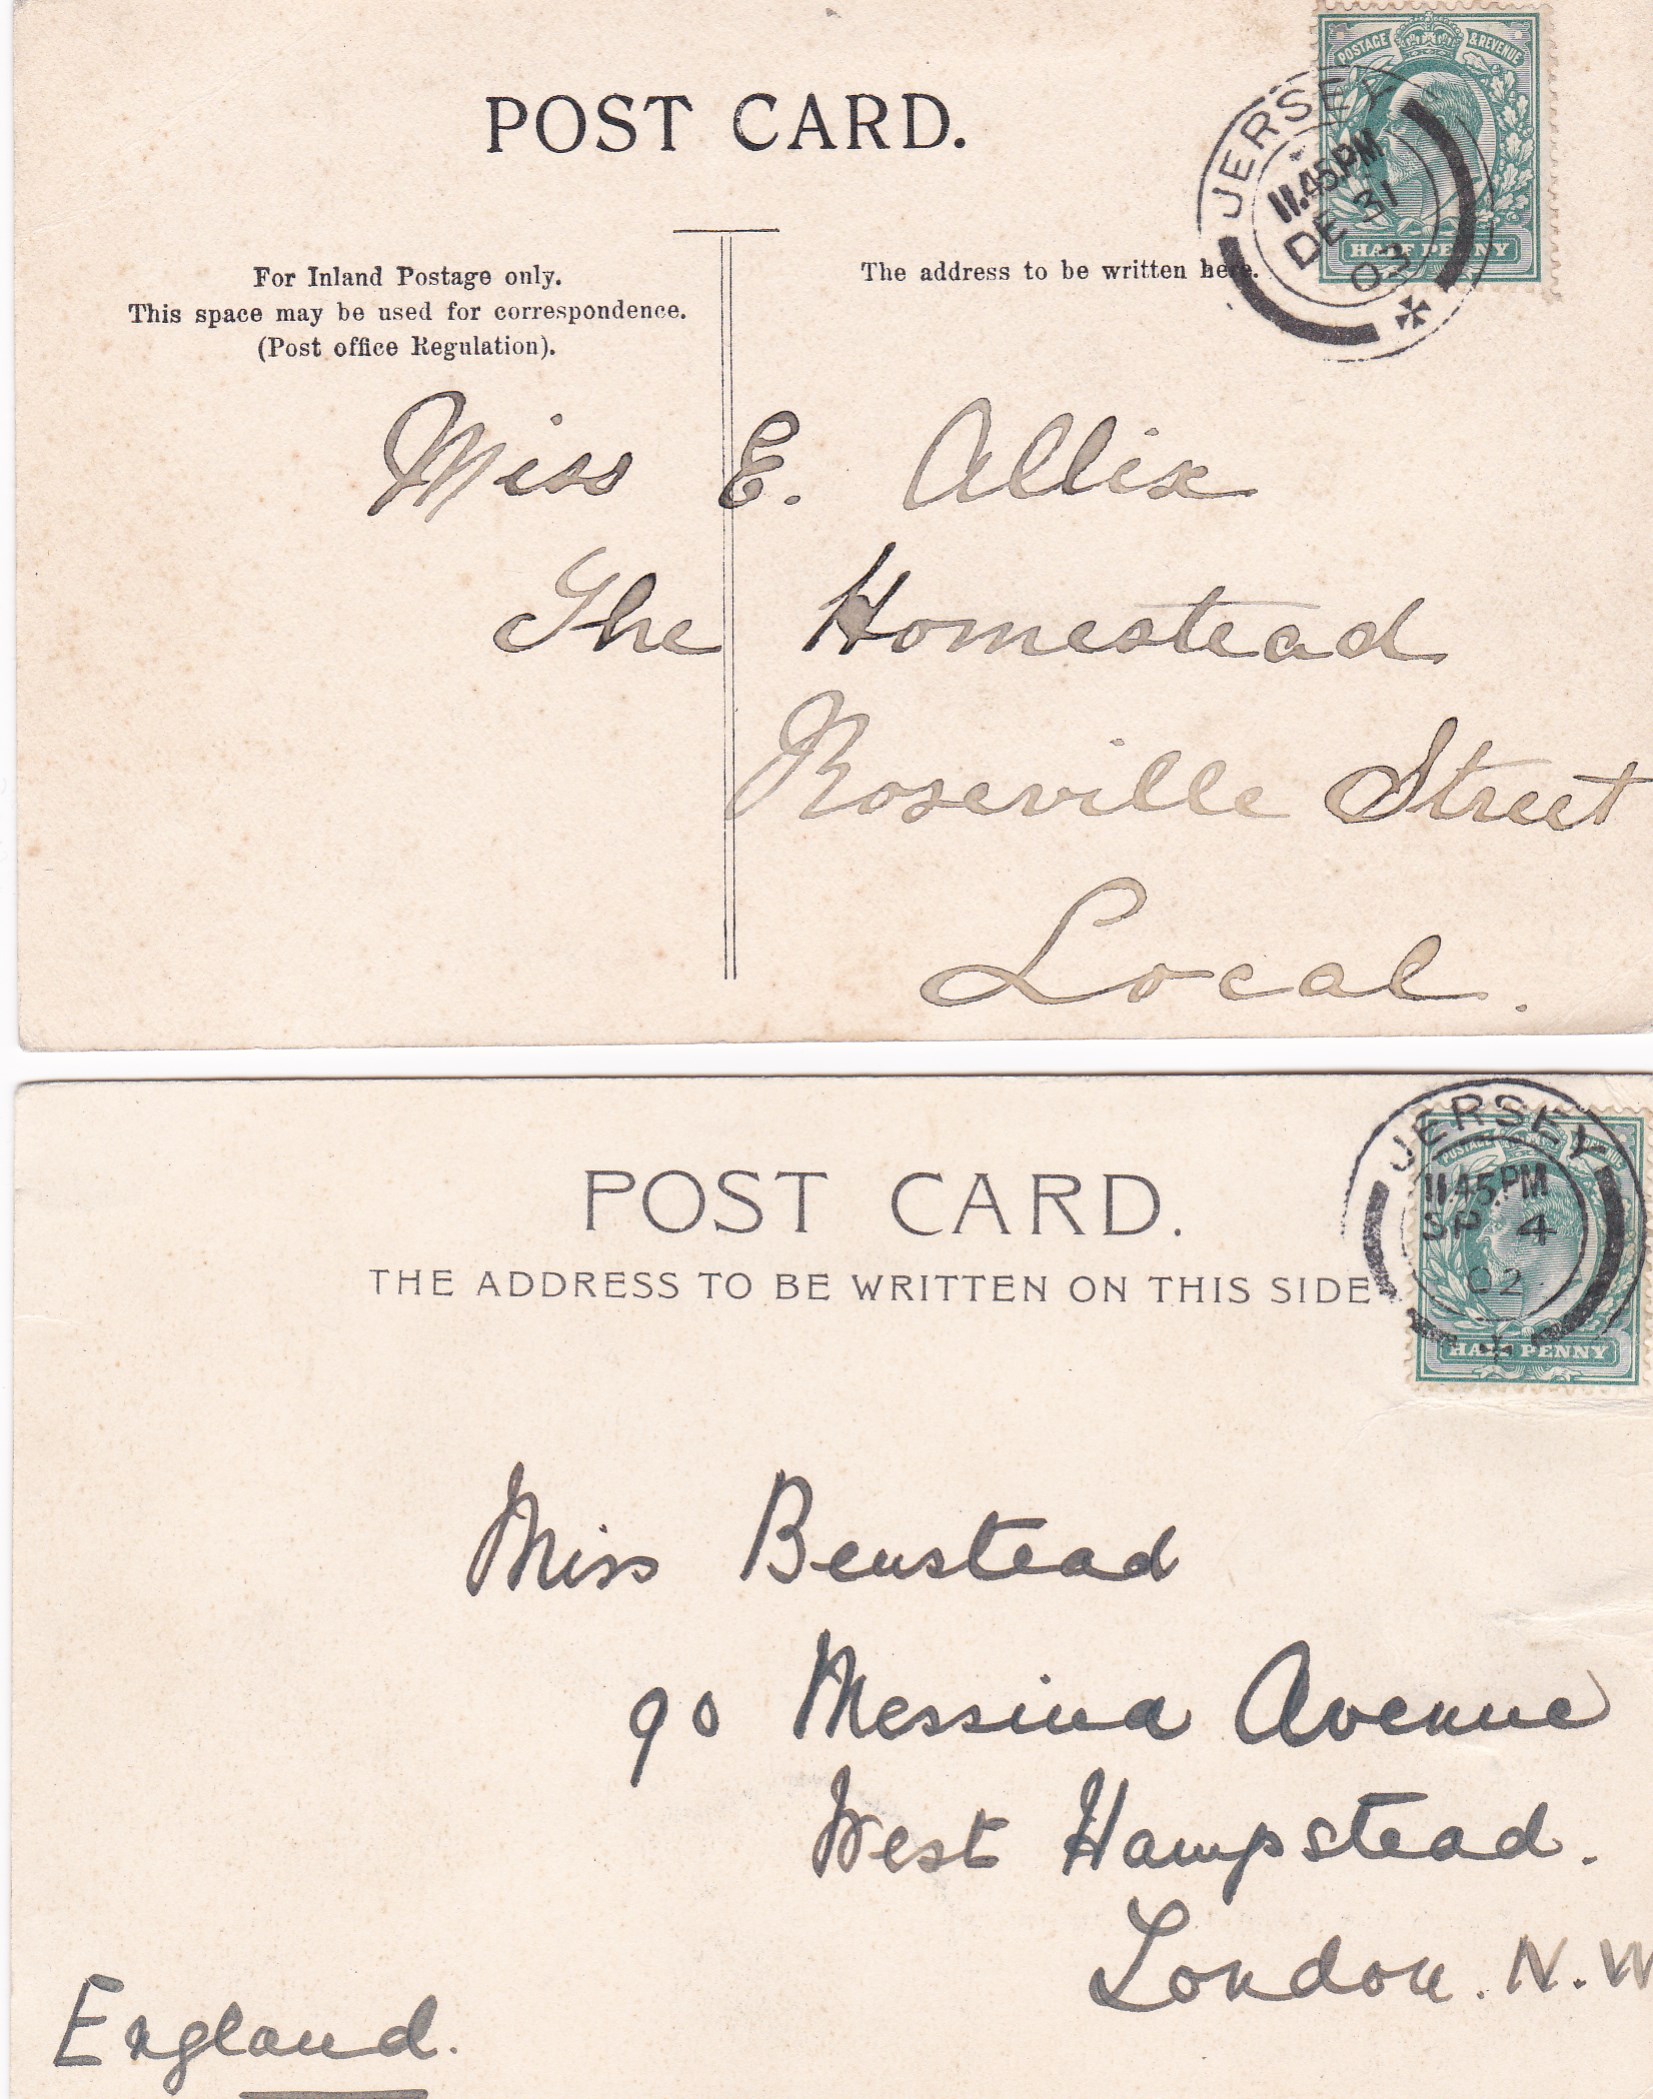 POST CARD.
POSTAGE & REVENUE
JERSEY
11.45.PM
DE 31
03
HALF PENNY
For Inland Postage only.
This space may be used for correspondence.
(Post office Regulation).
The address to be written here.
Miss E. Allix
The Homestead
Roseville Street
Local.
POST CARD.
THE ADDRESS TO BE WRITTEN ON THIS SIDE
POSTAGE & REVENUE
JERSEY
11.45.PM
SP 4
02
HALF PENNY
Miss Benstead
90 Messina Avenue
West Hampstead.
London. N.W
England.